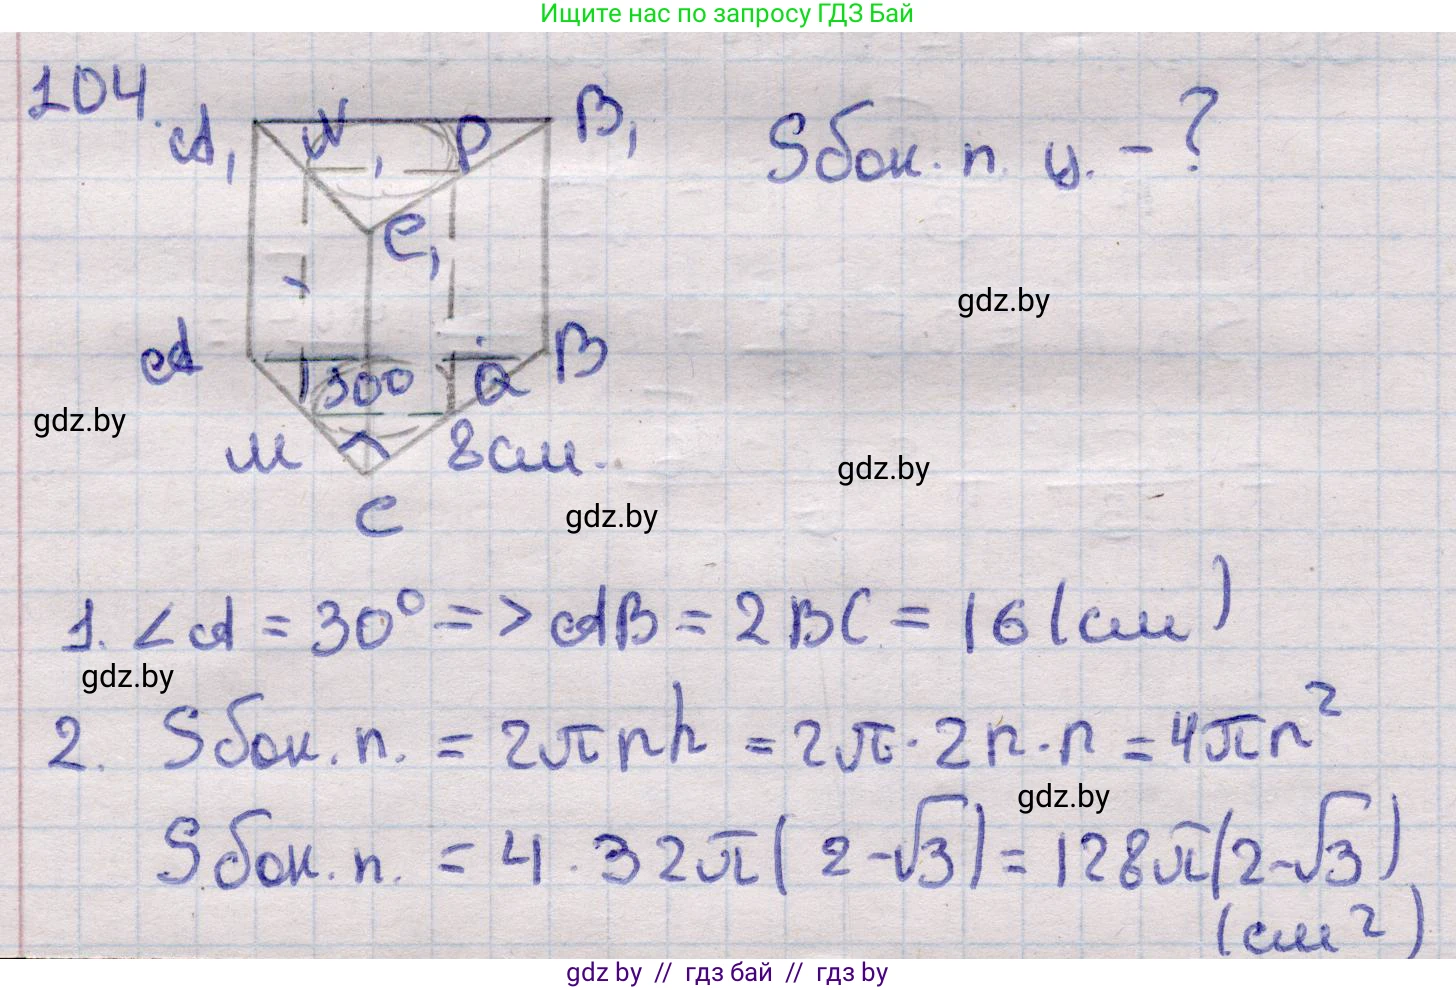 Ищите нас по запросу ГДЗ Бай
104.
A₁ N P B₁
Sбок. п. ц. - ?
C₁
gdz.by
A B
30° Q
gdz.by
M 8см.
gdz.by
C
gdz.by
1. ∠A = 30° => AB = 2BC = 16 (см)
gdz.by
2. Sбок. п. = 2πrh = 2π·2r·r = 4πr²
gdz.by
Sбок. п. = 4·32π(2-√3) = 128π(2-√3)
(см²)
gdz by // гдз бай // гдз by